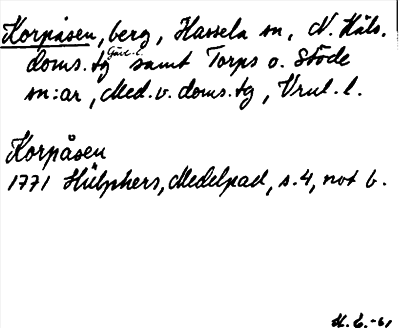 Korpåsen, berg, Hassela sn, N. Häls.
doms. tg Gävl. l. samt Torps o. Stöde
sn:ar, Med. v. doms. tg, Vrnl. l.
Korpåsen
1771 Hülphers, Medelpad, s. 4, not b.